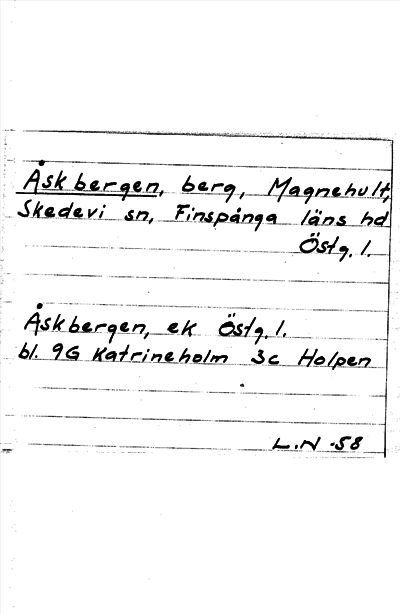 Åskbergen, berg, Magnehult,
Skedevi sn, Finspånga läns hd
Östg. l.
Åskbergen, ek Östg. l.
bl. 9G Katrineholm 3c Holpen
L.N -58